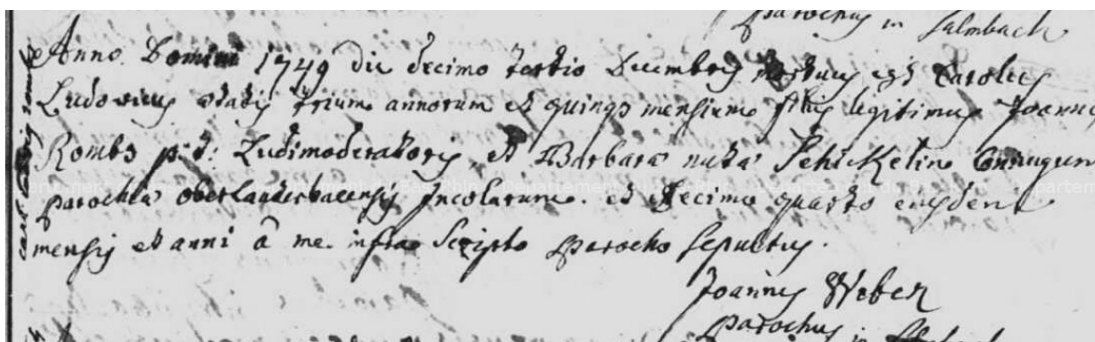 parochus in Salmbach
Anno Domini 1749 die decimo tertio Decembris mortuus est Carolus
Ludovicus ætatis trium annorum et quinqs mensium filius legitimus Joannis
Rombs p.t. Ludimoderatoris et Barbara nata Schickelino Conjugum
parochia oberlauterbacensis incolarum. et decimo quarto ejusdem
mensis et anni â me infra scripto parocho sepultus.
Joannes Weber
parochus in